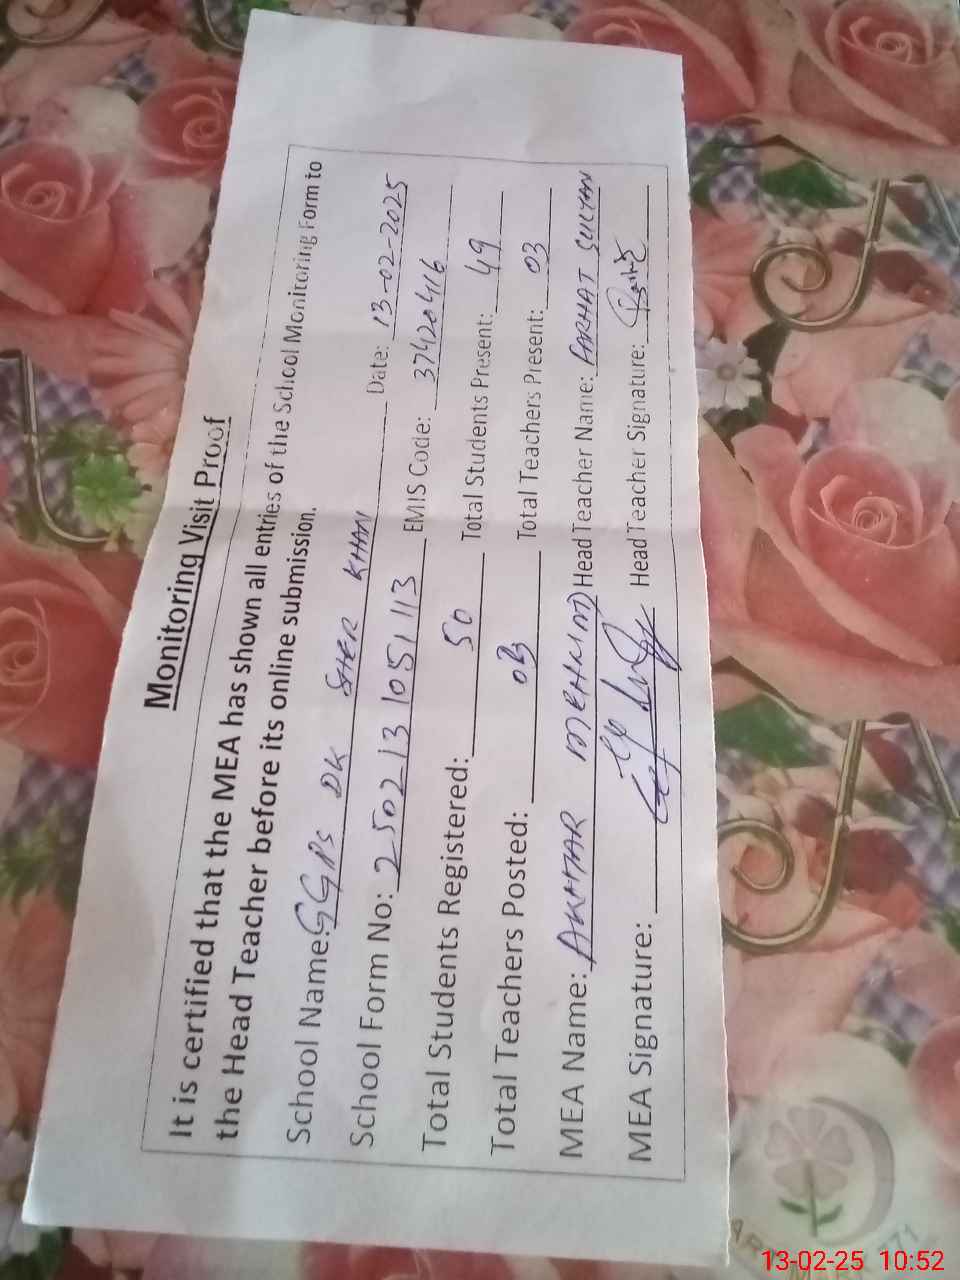 Monitoring Visit Proof
It is certified that the MEA has shown all entries of the School Monitoring Form to
the Head Teacher before its online submission.
School Name: GGPS DK SHER KHAN Date: 13-02-2025
School Form No: 250213105113 EMIS Code: 37420416
Total Students Registered: 50 Total Students Present: 49
Total Teachers Posted: 03 Total Teachers Present: 03
MEA Name: AKHTAR MEHMOOD Head Teacher Name: FARHAT SULTAN
MEA Signature: Head Teacher Signature:
13-02-25 10:52